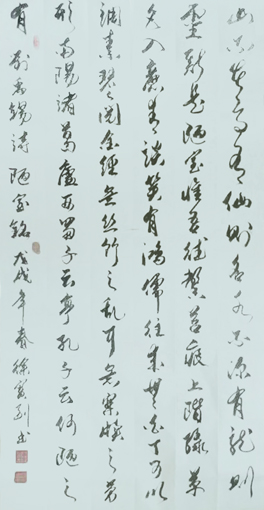 山不在高有仙则名水不深有龙则
灵斯是陋室惟吾德馨苔痕上阶绿草
色入帘青谈笑有鸿儒往来无白丁可以
调素琴阅金经无丝竹之乱耳无案牍之劳
形南阳诸葛庐西蜀子云亭孔子云何陋之
有 刘禹锡诗陋室铭 戊戌年春 徐 书